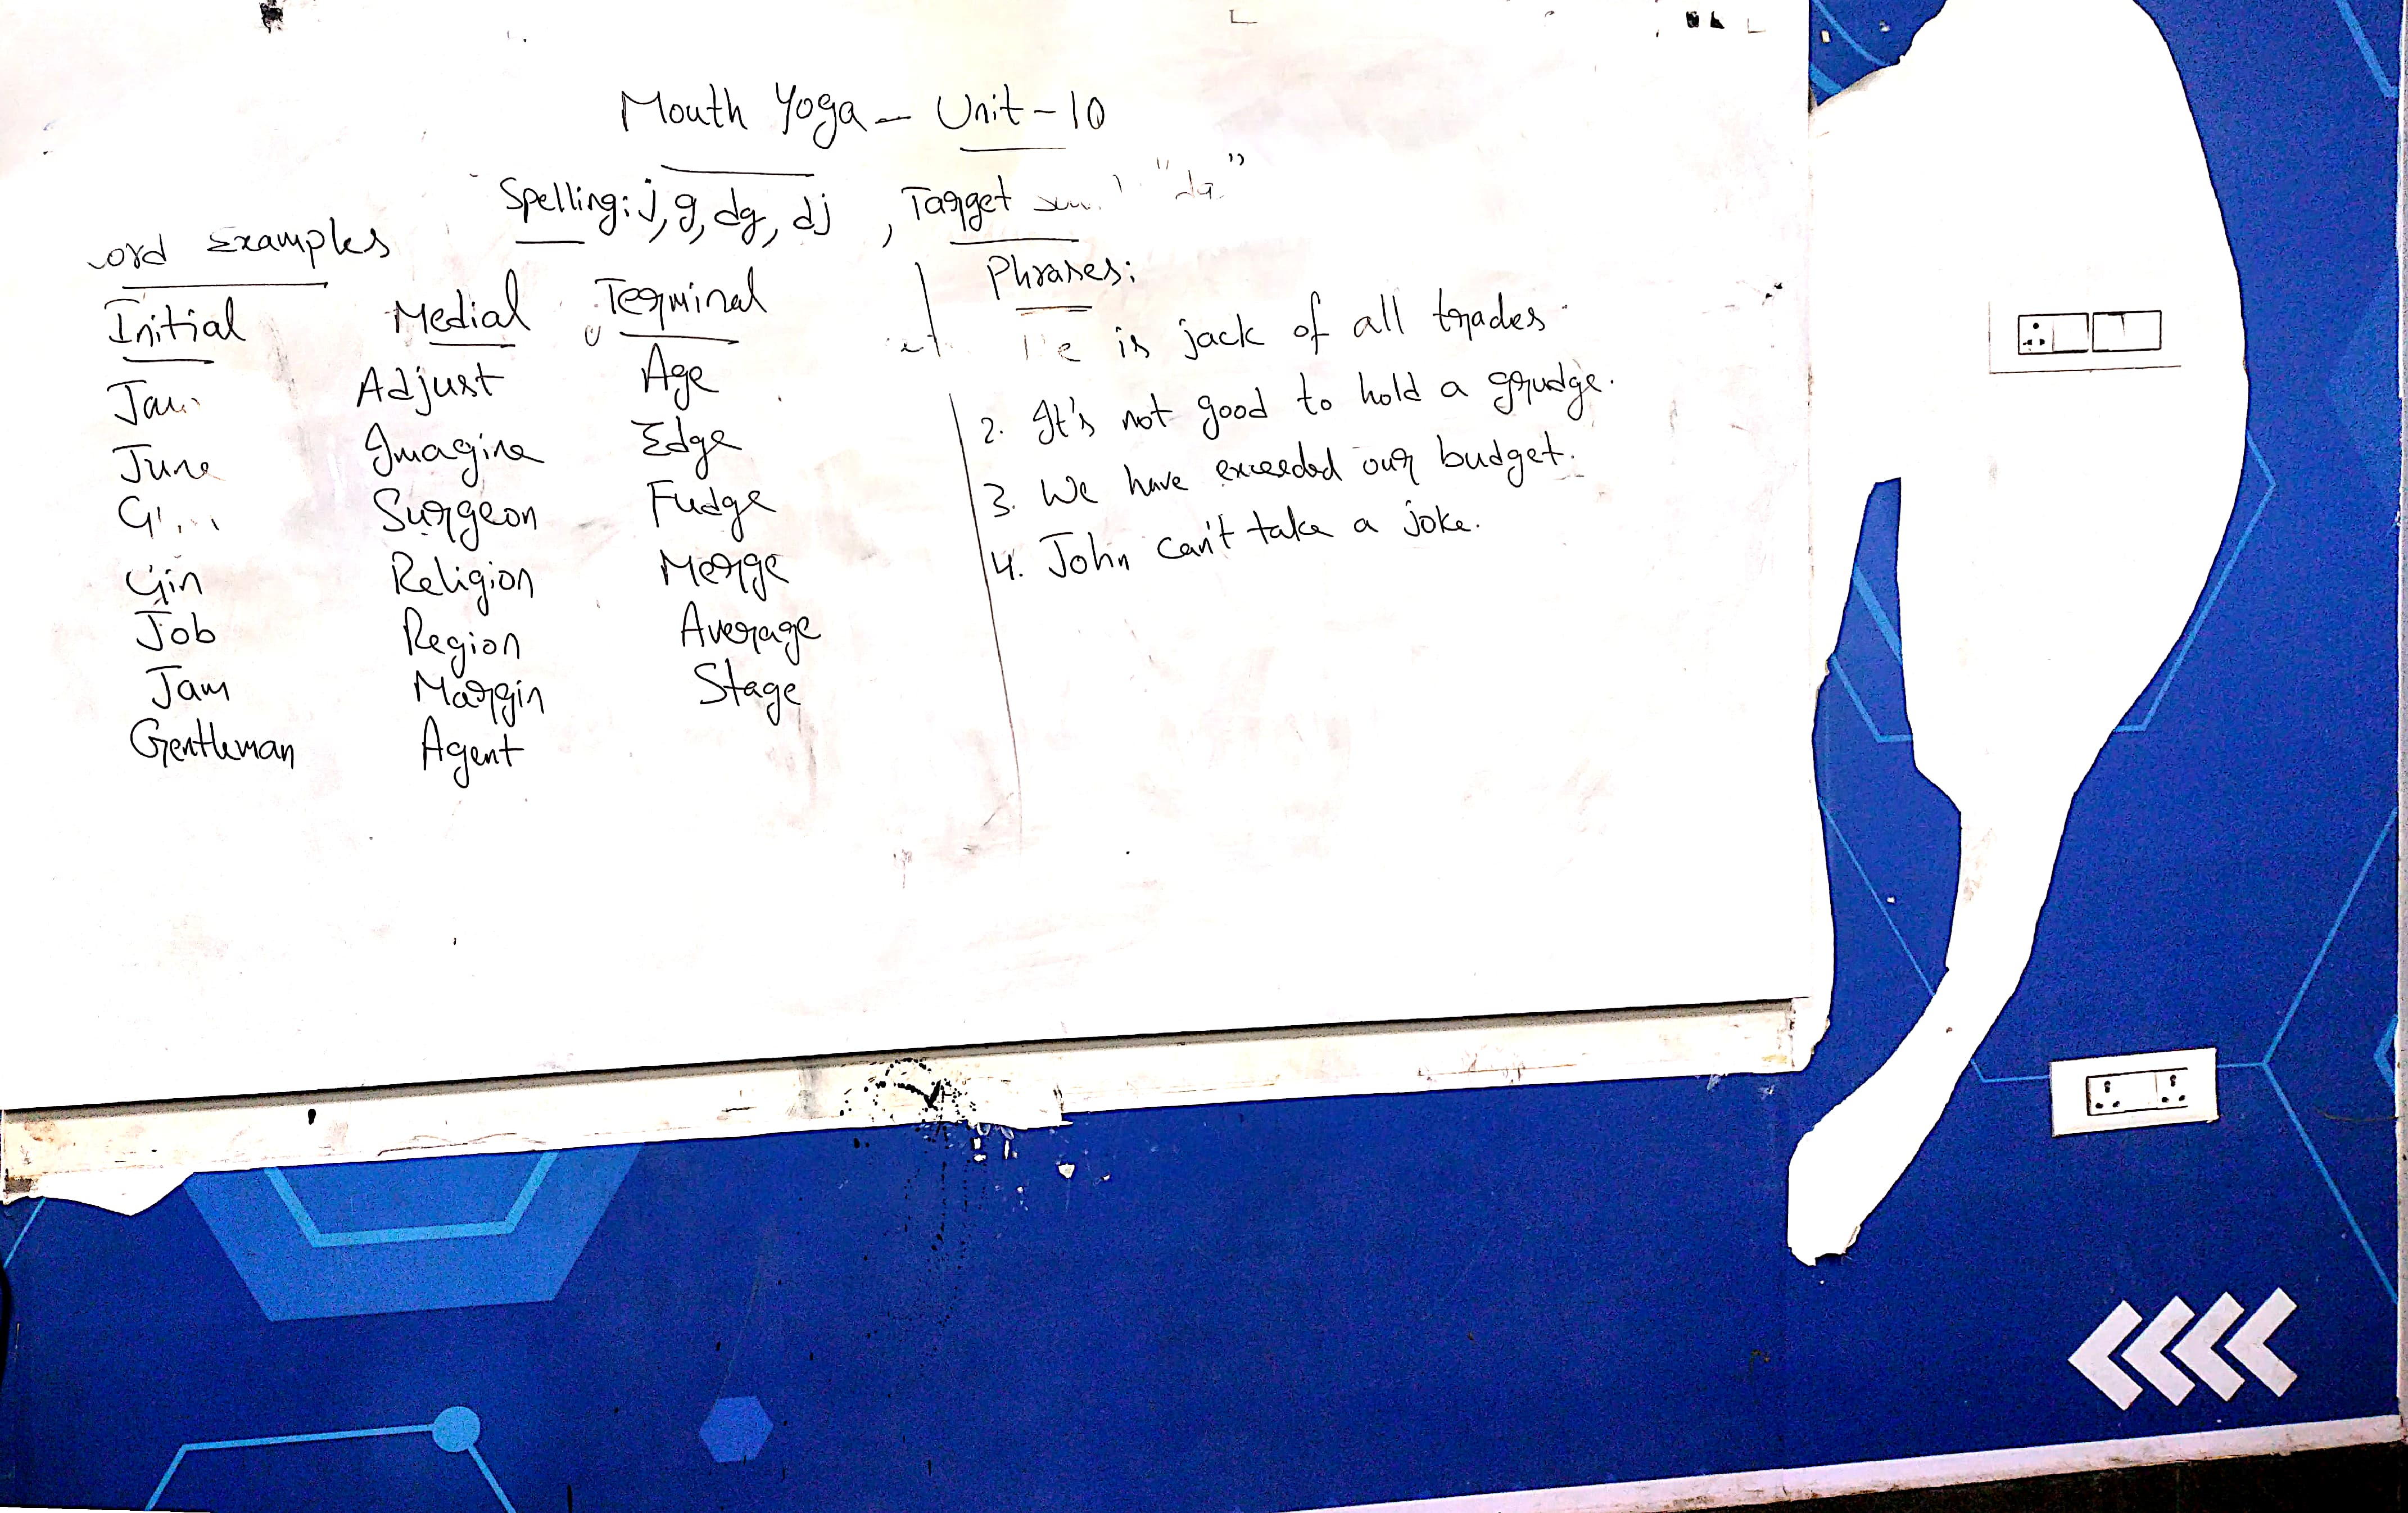 Mouth Yoga - Unit - 10
Spelling: j, g, dg, dj , Target
Examples
Initial Medial Terminal
Adjust Age
June Imagine Edge
Surgeon Fudge
Gin Religion Merge
Job Region Average
Jam Margin Stage
Gentleman Agent
Phrases:
is jack of all trades
2. It's not good to hold a grudge.
3. We have exceeded our budget.
4. John can't take a joke.